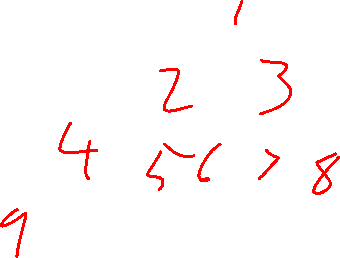 1
2 3
4 5 6 > 8
9